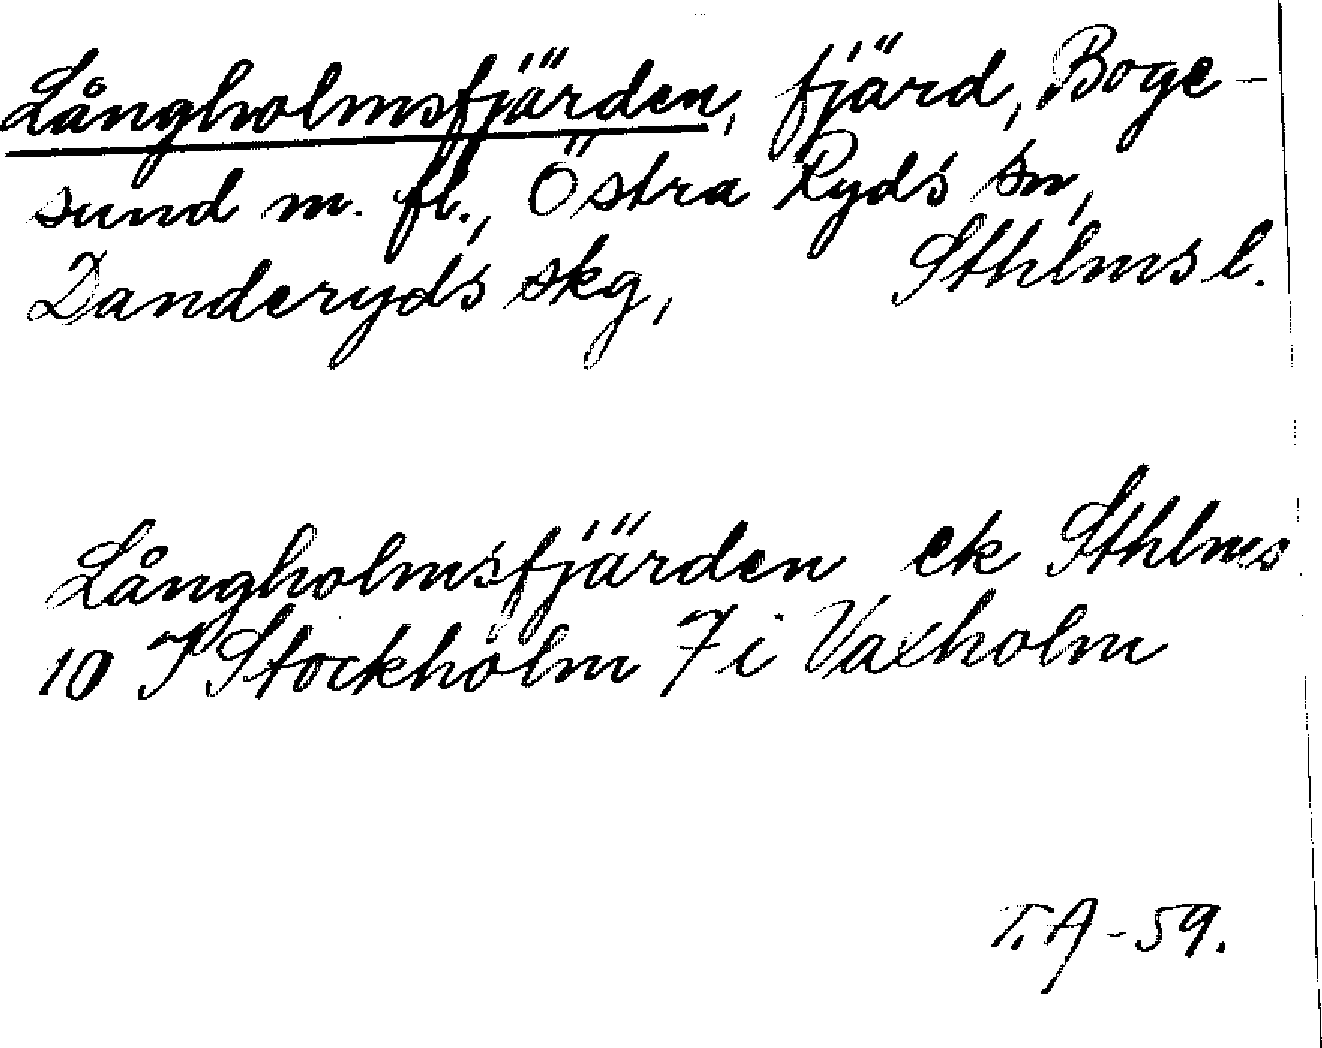 Långholmsfjärden, fjärd, Boge-
sund m. fl., Östra Ryds sn,
Danderyds skg, Sthlms l.
Långholmsfjärden ek Sthlms
10 I Stockholm 7 i Vaxholm
T.A-59.